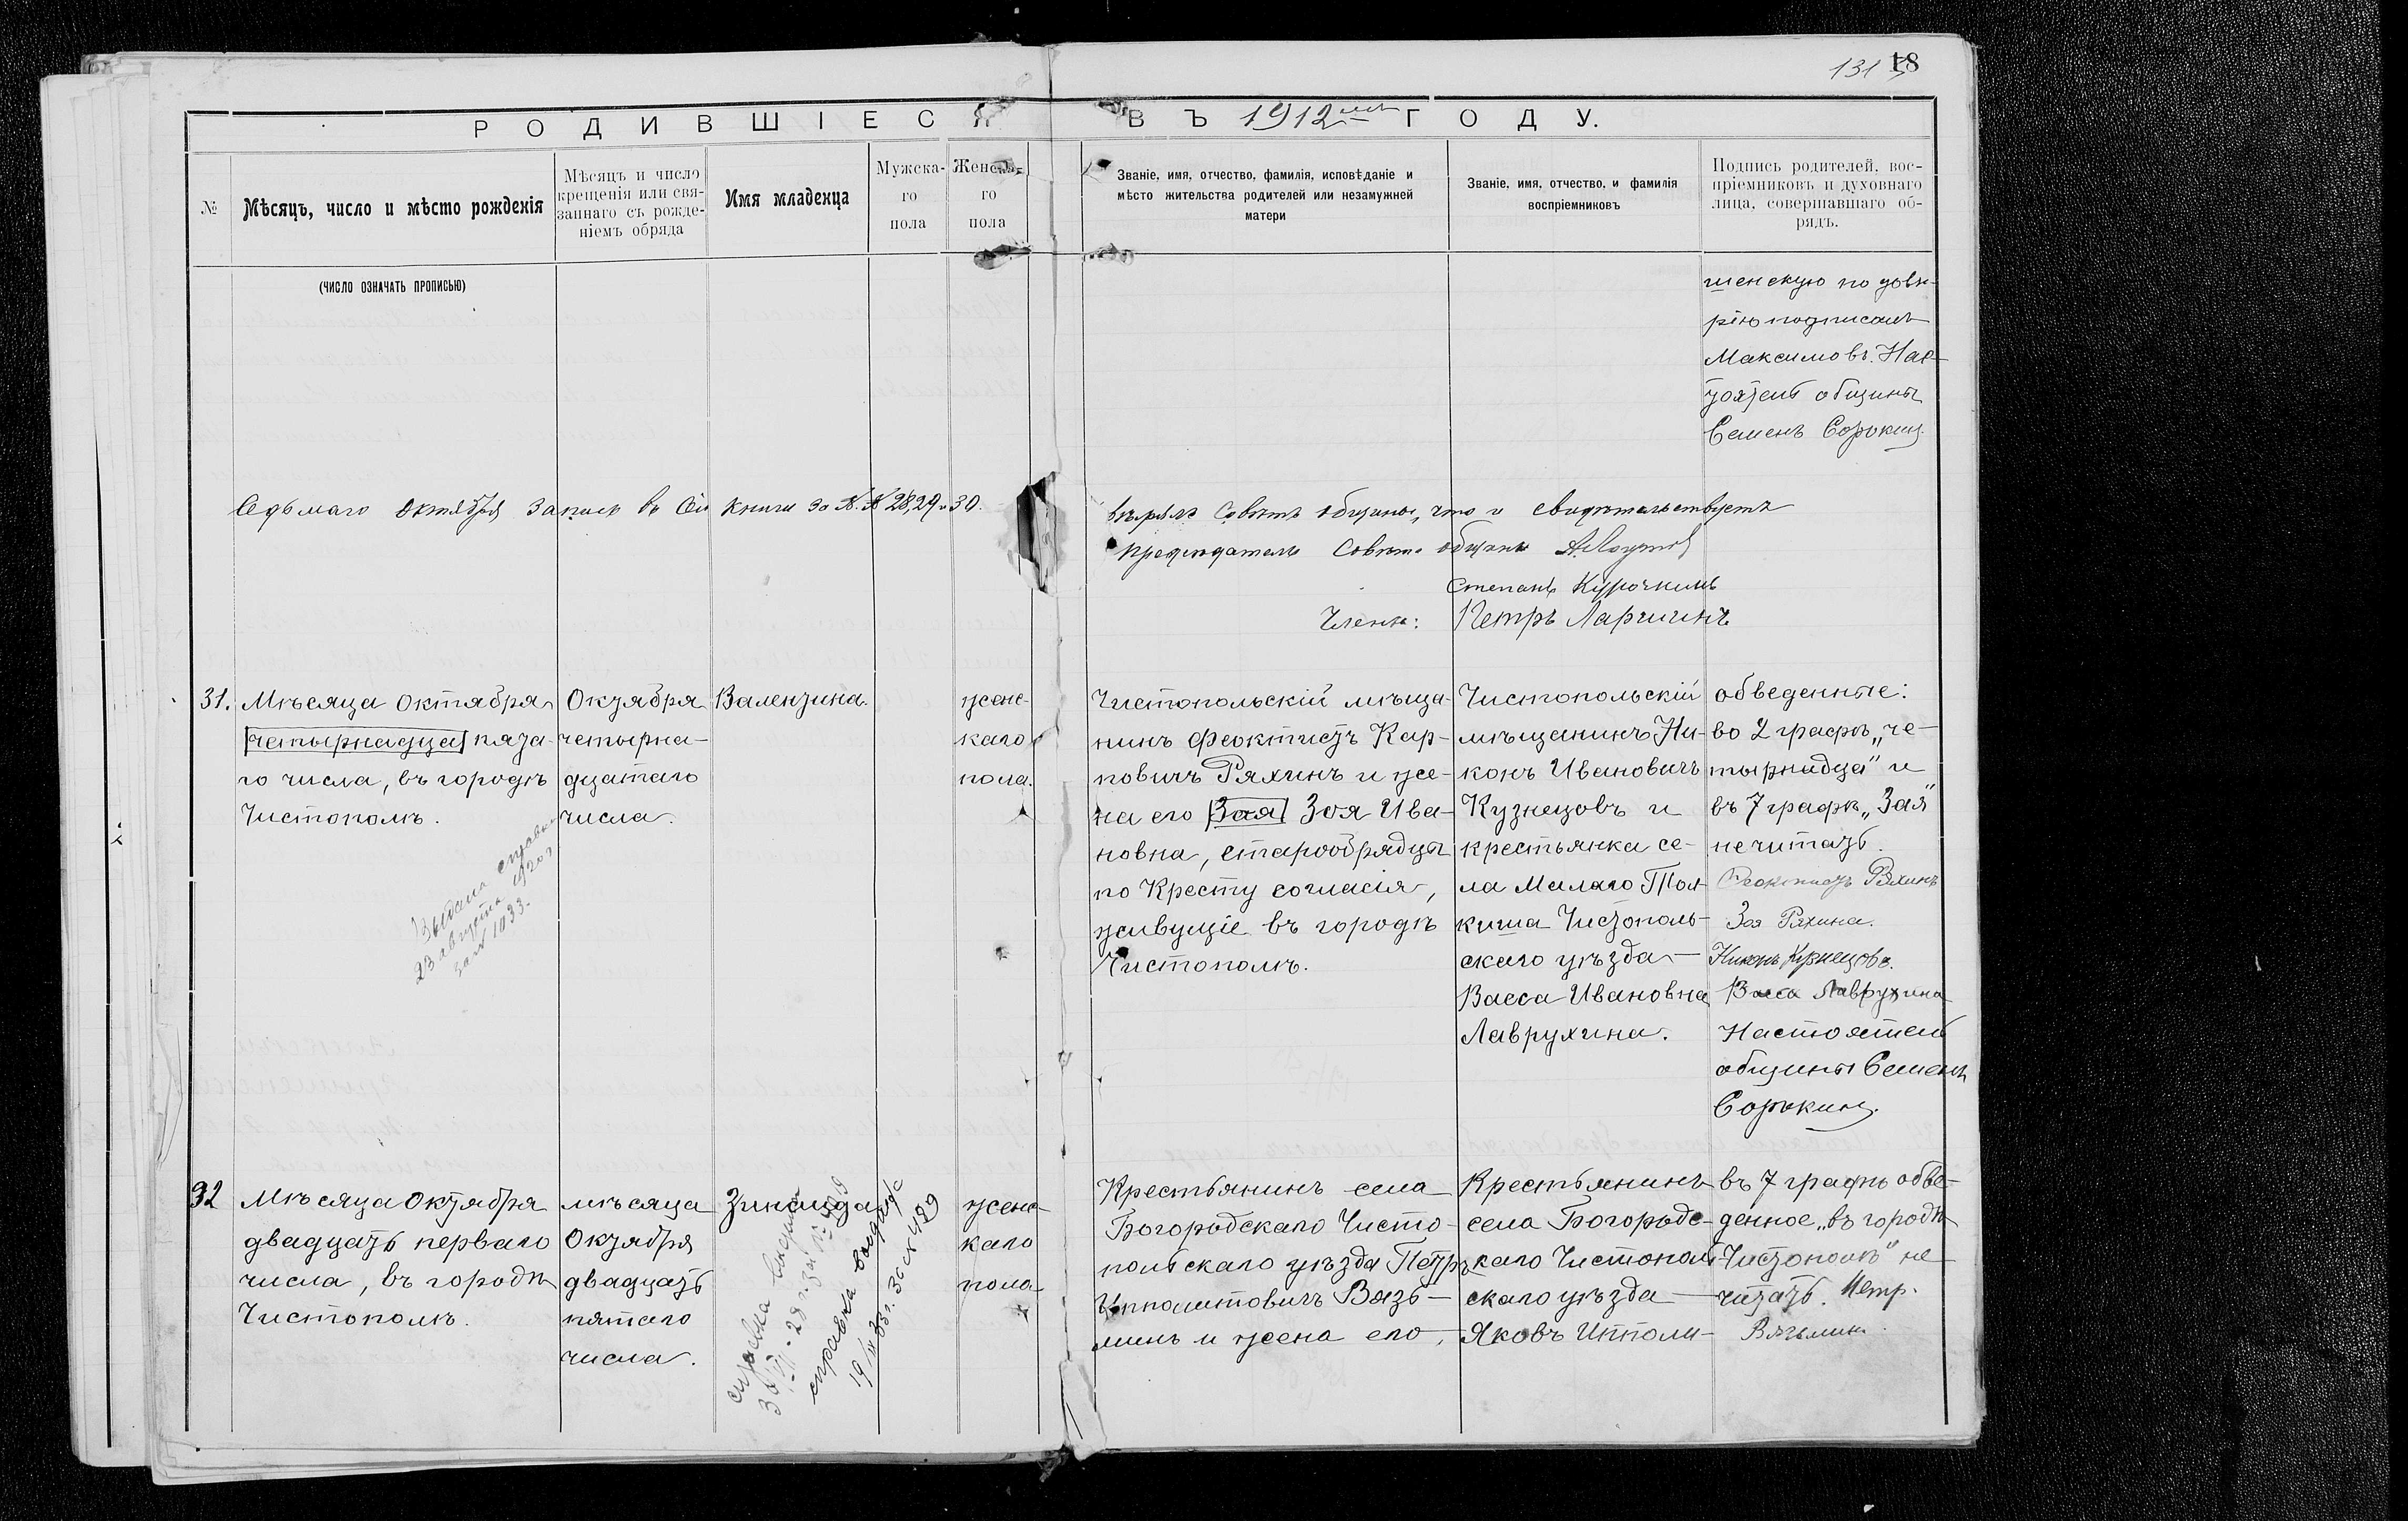 131 18
РОДИВШІЕСЯ ВЪ 1912мъ ГОДУ.
№
Мѣсяцъ, число и мѣсто рожденія
Мѣсяцъ и число
крещенія или свя-
заннаго съ рожде-
ніемъ обряда
Имя младенца
Мужска-
го
пола
Женска-
го
пола
Званіе, имя, отчество, фамилія, исповѣданіе и
мѣсто жительства родителей или незамужней
матери
Званіе, имя, отчество, и фамилія
воспріемниковъ
Подпись родителей, вос-
пріемниковъ и духовнаго
лица, совершавшаго об-
рядъ.
(ЧИСЛО ОЗНАЧАТЬ ПРОПИСЬЮ)
шенскую по довѣ-
рію подписалъ
Максимовъ. Нас-
тоятель общины
Семенъ Сорокинъ
Седьмаго Октября запись въ сей книги за №.№ 28, 29 и 30.
вѣрялъ Совѣтъ общины, что и свидѣтельствуетъ
Предсѣдатель Совѣта общины
Степанъ Курочкинъ
Члены: Петръ Ларшинъ
31.
Мѣсяца Октября
четырнадца пята-
го числа, въ городѣ
Чистополѣ.
Октября
четырна-
дцатаго
числа.
Валентина.
женс-
каго
пола.
Чистопольскій мѣща-
нинъ Феоктистъ Кар-
повичъ Ряхинъ и же-
на его Зая Зоя Ива-
новна, старообрядцы
по Кресту согласія,
живущіе въ городѣ
Чистополѣ.
Чистопольскій
мѣщанинъ Ни-
конъ Ивановичъ
Кузнецовъ и
крестьянка се-
ла Малаго Тол-
киша Чистополь-
скаго уѣзда
Васса Ивановна
Лаврухина.
обведенные:
во 2 графѣ „че-
тырнадца" и
въ 7 графѣ „Зая"
не читать.
Феоктистъ Ряхинъ
Зоя Ряхина.
Никонъ Кузнецовъ.
Васса Лаврухина
Настоятель
общины Семенъ
Сорокинъ.
Выдана справка
23 августа 1920 г
за № 1033.
32
Мѣсяца Октября
двадцать перваго
числа, въ городѣ
Чистополѣ.
мѣсяца
Октября
двадцать
пятаго
числа.
Зинаида
женс-
каго
пола
справка выдана
справка выдана
19/III 33 г. за № 499
Крестьянинъ села
Богородскаго Чисто-
польскаго уѣзда Петръ
Ипполитовичъ Вязь-
минъ и жена его,
Крестьянинъ
села Богородс-
каго Чистополь-
скаго уѣзда
Яковъ Иппoли-
въ 7 графѣ обве-
денное „въ городѣ
Чистополѣ" не
читать. Петр.
Вязьминъ